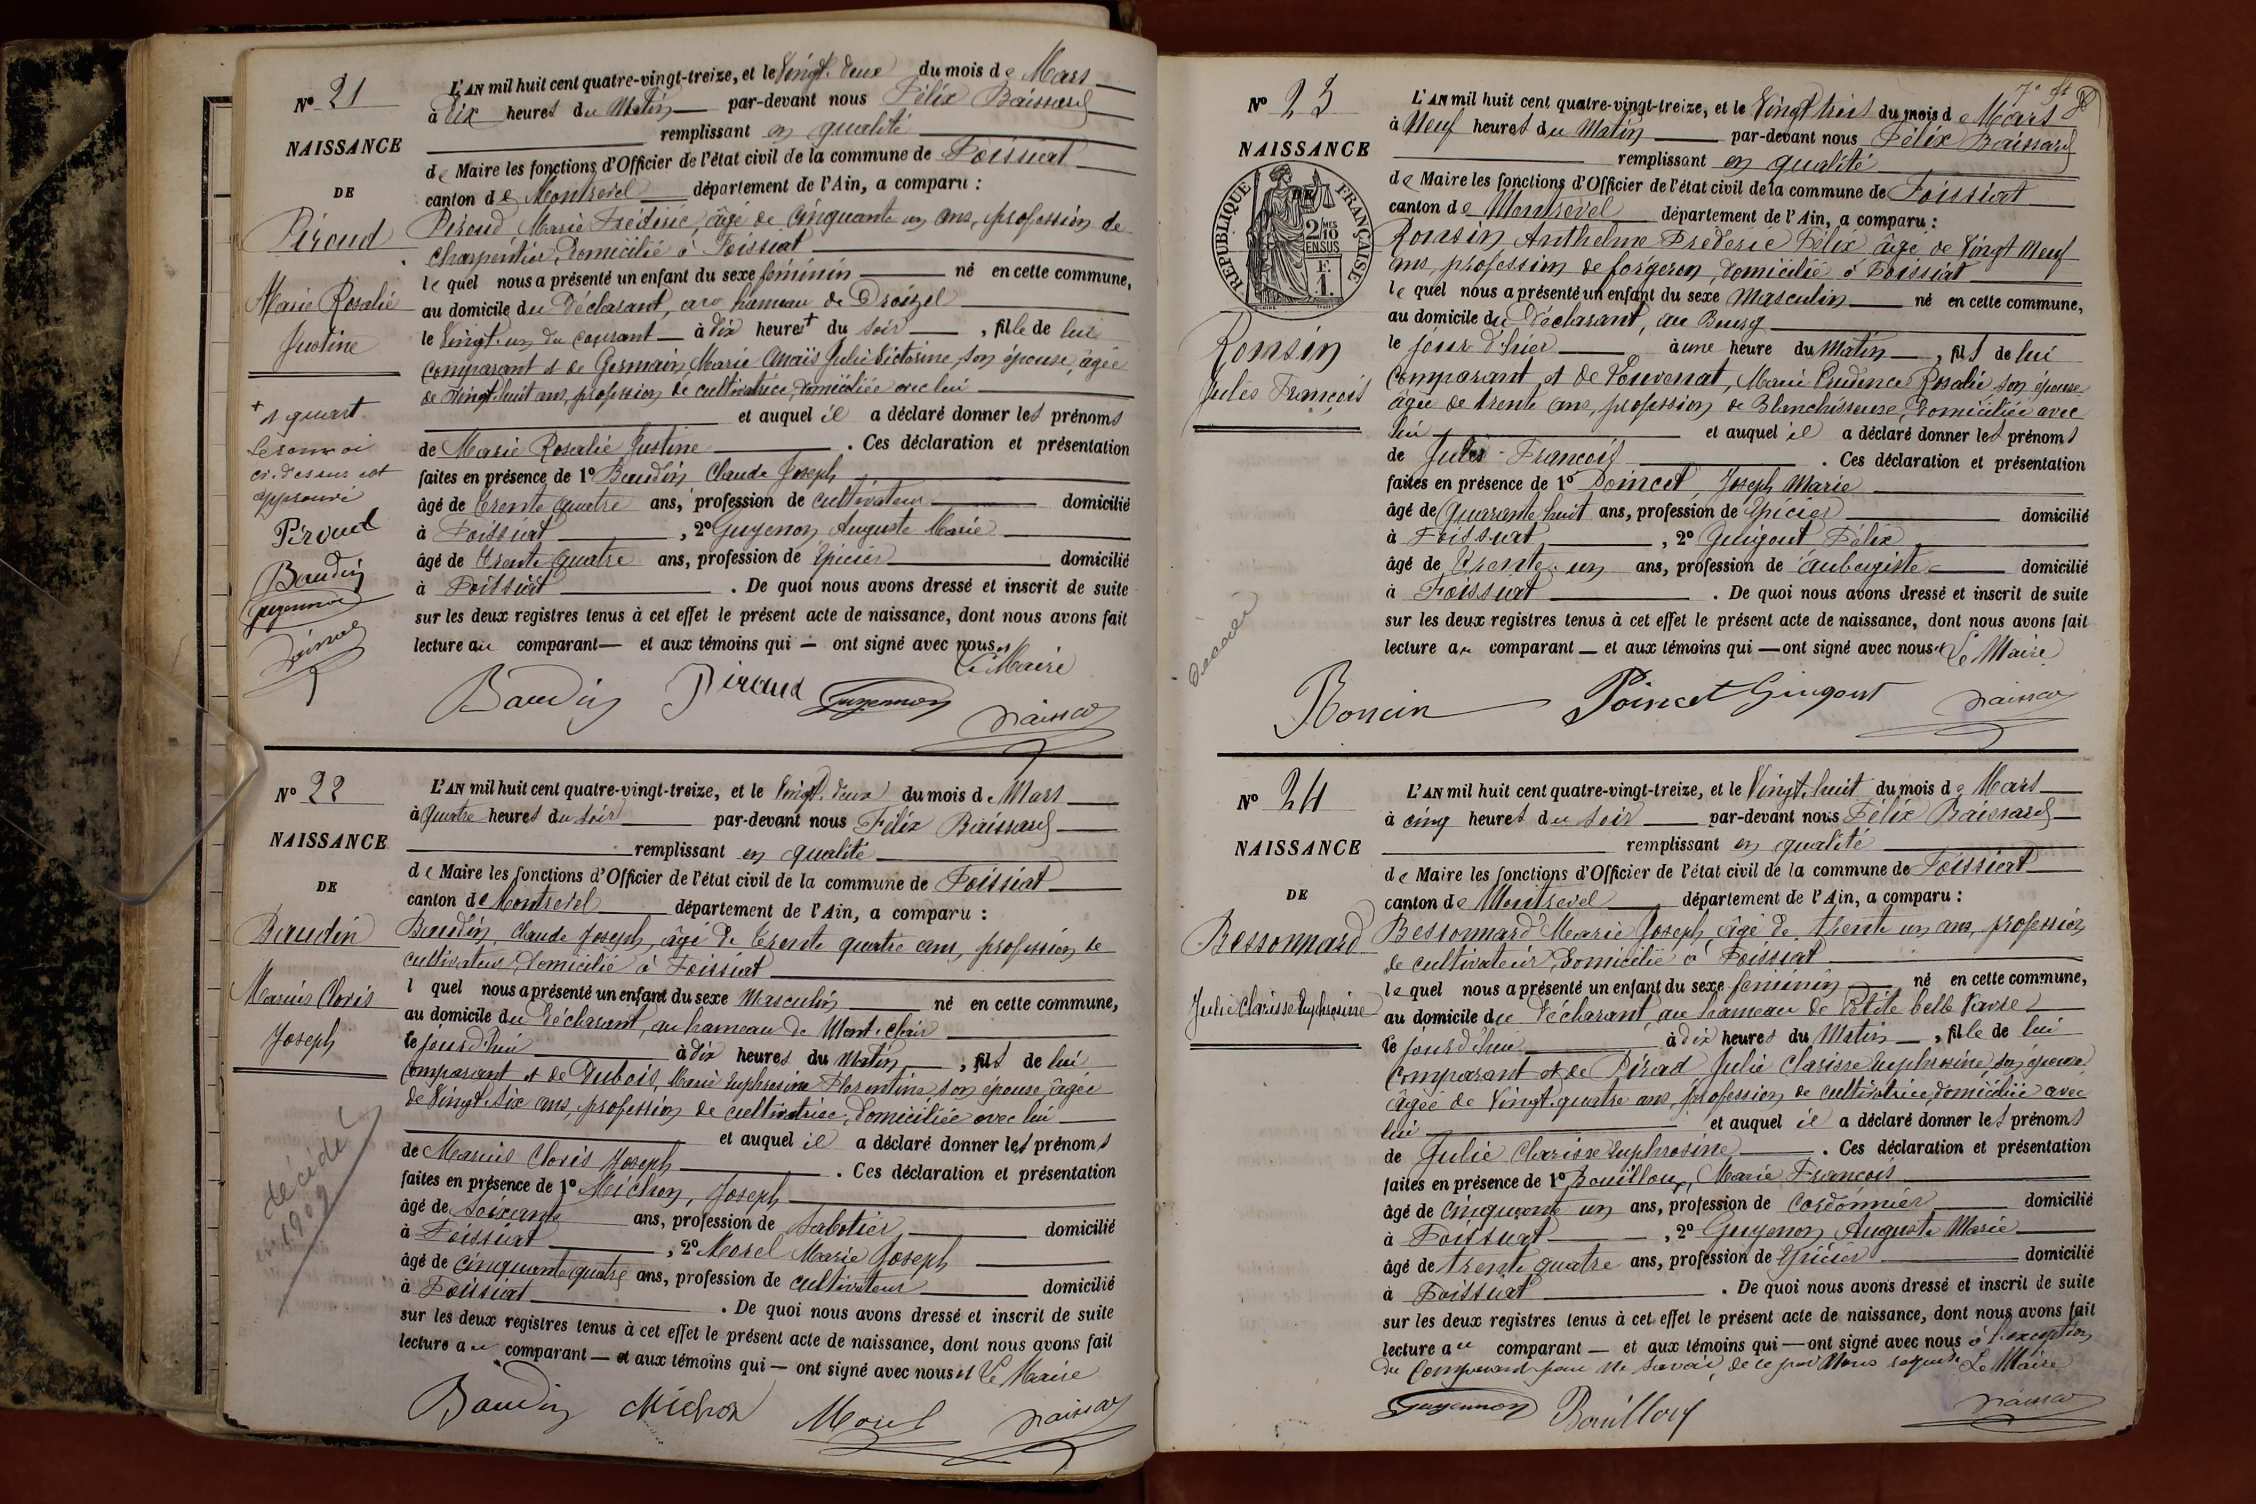 Nº 21
NAISSANCE
DE
Piroud
Marie Rosalie
Justine
+ 1 quart
Le renvoi
ci-dessus est
approuvé
Piroud
Baudin
Guyennon
L'AN mil huit cent quatre-vingt-treize, et le Vingt-deux du mois de Mars
à dix heures du Matin par-devant nous Félix Baissard
remplissant en qualité
de Maire les fonctions d'Officier de l'état civil de la commune de Foissiat
canton de Montrevel département de l'Ain, a comparu :
Piroud Marie Frédéric, âgé de Cinquante un ans, profession de
charpentier, domicilié à Foissiat
le quel nous a présenté un enfant du sexe féminin né en cette commune,
au domicile du Déclarant, au hameau de
le Vingt-un du courant à dix heures + du soir, fille de lui
comparant et de Germain, Marie Anaïs Julie Victorine, son épouse, âgée
de Vingt-huit ans, profession de cultivatrice, domiciliée avec lui
et auquel il a déclaré donner les prénoms
de Marie Rosalie Justine. Ces déclaration et présentation
faites en présence de 1º Baudin Claude Joseph
âgé de trente quatre ans, profession de cultivateur domicilié
à Foissiat, 2º Guyenon Auguste Marie
âgé de trente quatre ans, profession de épicier domicilié
à Foissiat. De quoi nous avons dressé et inscrit de suite
sur les deux registres tenus à cet effet le présent acte de naissance, dont nous avons fait
lecture au comparant — et aux témoins qui — ont signé avec nous.
Le Maire
Baudin Piroud Guyennon
Nº 22
NAISSANCE
DE
Baudin
Marius Clovis
Joseph
décédé
en 1909
L'AN mil huit cent quatre-vingt-treize, et le Vingt-deux du mois de Mars
à Quatre heures du soir par-devant nous Félix Baissard
remplissant en qualité
de Maire les fonctions d'Officier de l'état civil de la commune de Foissiat
canton de Montrevel département de l'Ain, a comparu :
Baudin Claude Joseph, âgé de trente quatre ans, profession de
cultivateur, domicilié à Foissiat
l quel nous a présenté un enfant du sexe Masculin né en cette commune,
au domicile du Déclarant, au hameau de Mont-clair
le jourd'hui à dix heures du Matin, fils de lui
comparant et de Dubois, Marie Euphrosine Florentine, son épouse, âgée
de Vingt-six ans, profession de cultivatrice, domiciliée avec lui
et auquel il a déclaré donner les prénoms
de Marius Clovis Joseph. Ces déclaration et présentation
faites en présence de 1º Michon, Joseph
âgé de soixante ans, profession de sabotier domicilié
à Foissiat, 2º Morel Marie Joseph
âgé de cinquante quatre ans, profession de cultivateur domicilié
à Foissiat. De quoi nous avons dressé et inscrit de suite
sur les deux registres tenus à cet effet le présent acte de naissance, dont nous avons fait
lecture au comparant — et aux témoins qui — ont signé avec nous et Le Maire
Baudin Michon Morel
Nº 23
NAISSANCE
DE
RÉPUBLIQUE FRANÇAISE
2/10 MES
EN SUS
F.
1.
Ronsin
Jules François
L'AN mil huit cent quatre-vingt-treize, et le Vingt trois du mois de Mars
à Neuf heures du Matin par-devant nous Félix Baissard
remplissant en qualité
de Maire les fonctions d'Officier de l'état civil de la commune de Foissiat
canton de Montrevel département de l'Ain, a comparu :
Ronsin Anthelme Frédéric Félix âgé de Vingt Neuf
ans, profession de forgeron, domicilié à Foissiat
le quel nous a présenté un enfant du sexe Masculin né en cette commune,
au domicile du Déclarant, au Bourg
le jour d'hier à une heure du Matin, fils de lui
comparant, et de Louvenat, Marie Prudence Rosalie, son épouse
âgée de trente ans, profession de Blanchisseuse, domiciliée avec
lui et auquel il a déclaré donner les prénoms
de Jules - François. Ces déclaration et présentation
faites en présence de 1º Poincet Joseph Marie
âgé de Quarante huit ans, profession de Epicier domicilié
à Foissiat, 2º Guigout Félix
âgé de trente-un ans, profession de aubergiste domicilié
à Foissiat. De quoi nous avons dressé et inscrit de suite
sur les deux registres tenus à cet effet le présent acte de naissance, dont nous avons fait
lecture au comparant — et aux témoins qui — ont signé avec nous Le Maire
Roncin Poincet Gingout
Nº 24
NAISSANCE
DE
Bessonnard
Julie Clarisse Euphrosine
L'AN mil huit cent quatre-vingt-treize, et le Vingt-huit du mois de Mars
à cinq heures du soir par-devant nous Félix Baissard
remplissant en qualité
de Maire les fonctions d'Officier de l'état civil de la commune de Foissiat
canton de Montrevel département de l'Ain, a comparu :
Bessonnard Marie Joseph, âgé de trente un ans, profession
de cultivateur, domicilié à Foissiat
le quel nous a présenté un enfant du sexe féminin né en cette commune,
au domicile du Déclarant, au hameau de Petite belle
le jourd'hui à dix heures du Matin, fille de lui
comparant et de Pérad Julie Clarisse Euphrosine, son épouse
âgée de Vingt-quatre ans, profession de cultivatrice, domiciliée avec
lui et auquel il a déclaré donner les prénoms
de Julie Clarisse Euphrosine. Ces déclaration et présentation
faites en présence de 1º Bouilloux, Marie François
âgé de cinquante un ans, profession de cordonnier domicilié
à Foissiat, 2º Guyenon Auguste Marie
âgé de trente quatre ans, profession de épicier domicilié
à Foissiat. De quoi nous avons dressé et inscrit de suite
sur les deux registres tenus à cet effet le présent acte de naissance, dont nous avons fait
lecture au comparant — et aux témoins qui — ont signé avec nous à l'exception
du comparant pour ne savoir, de ce par Nous requis. Le Maire
Guyennon Bouilloux